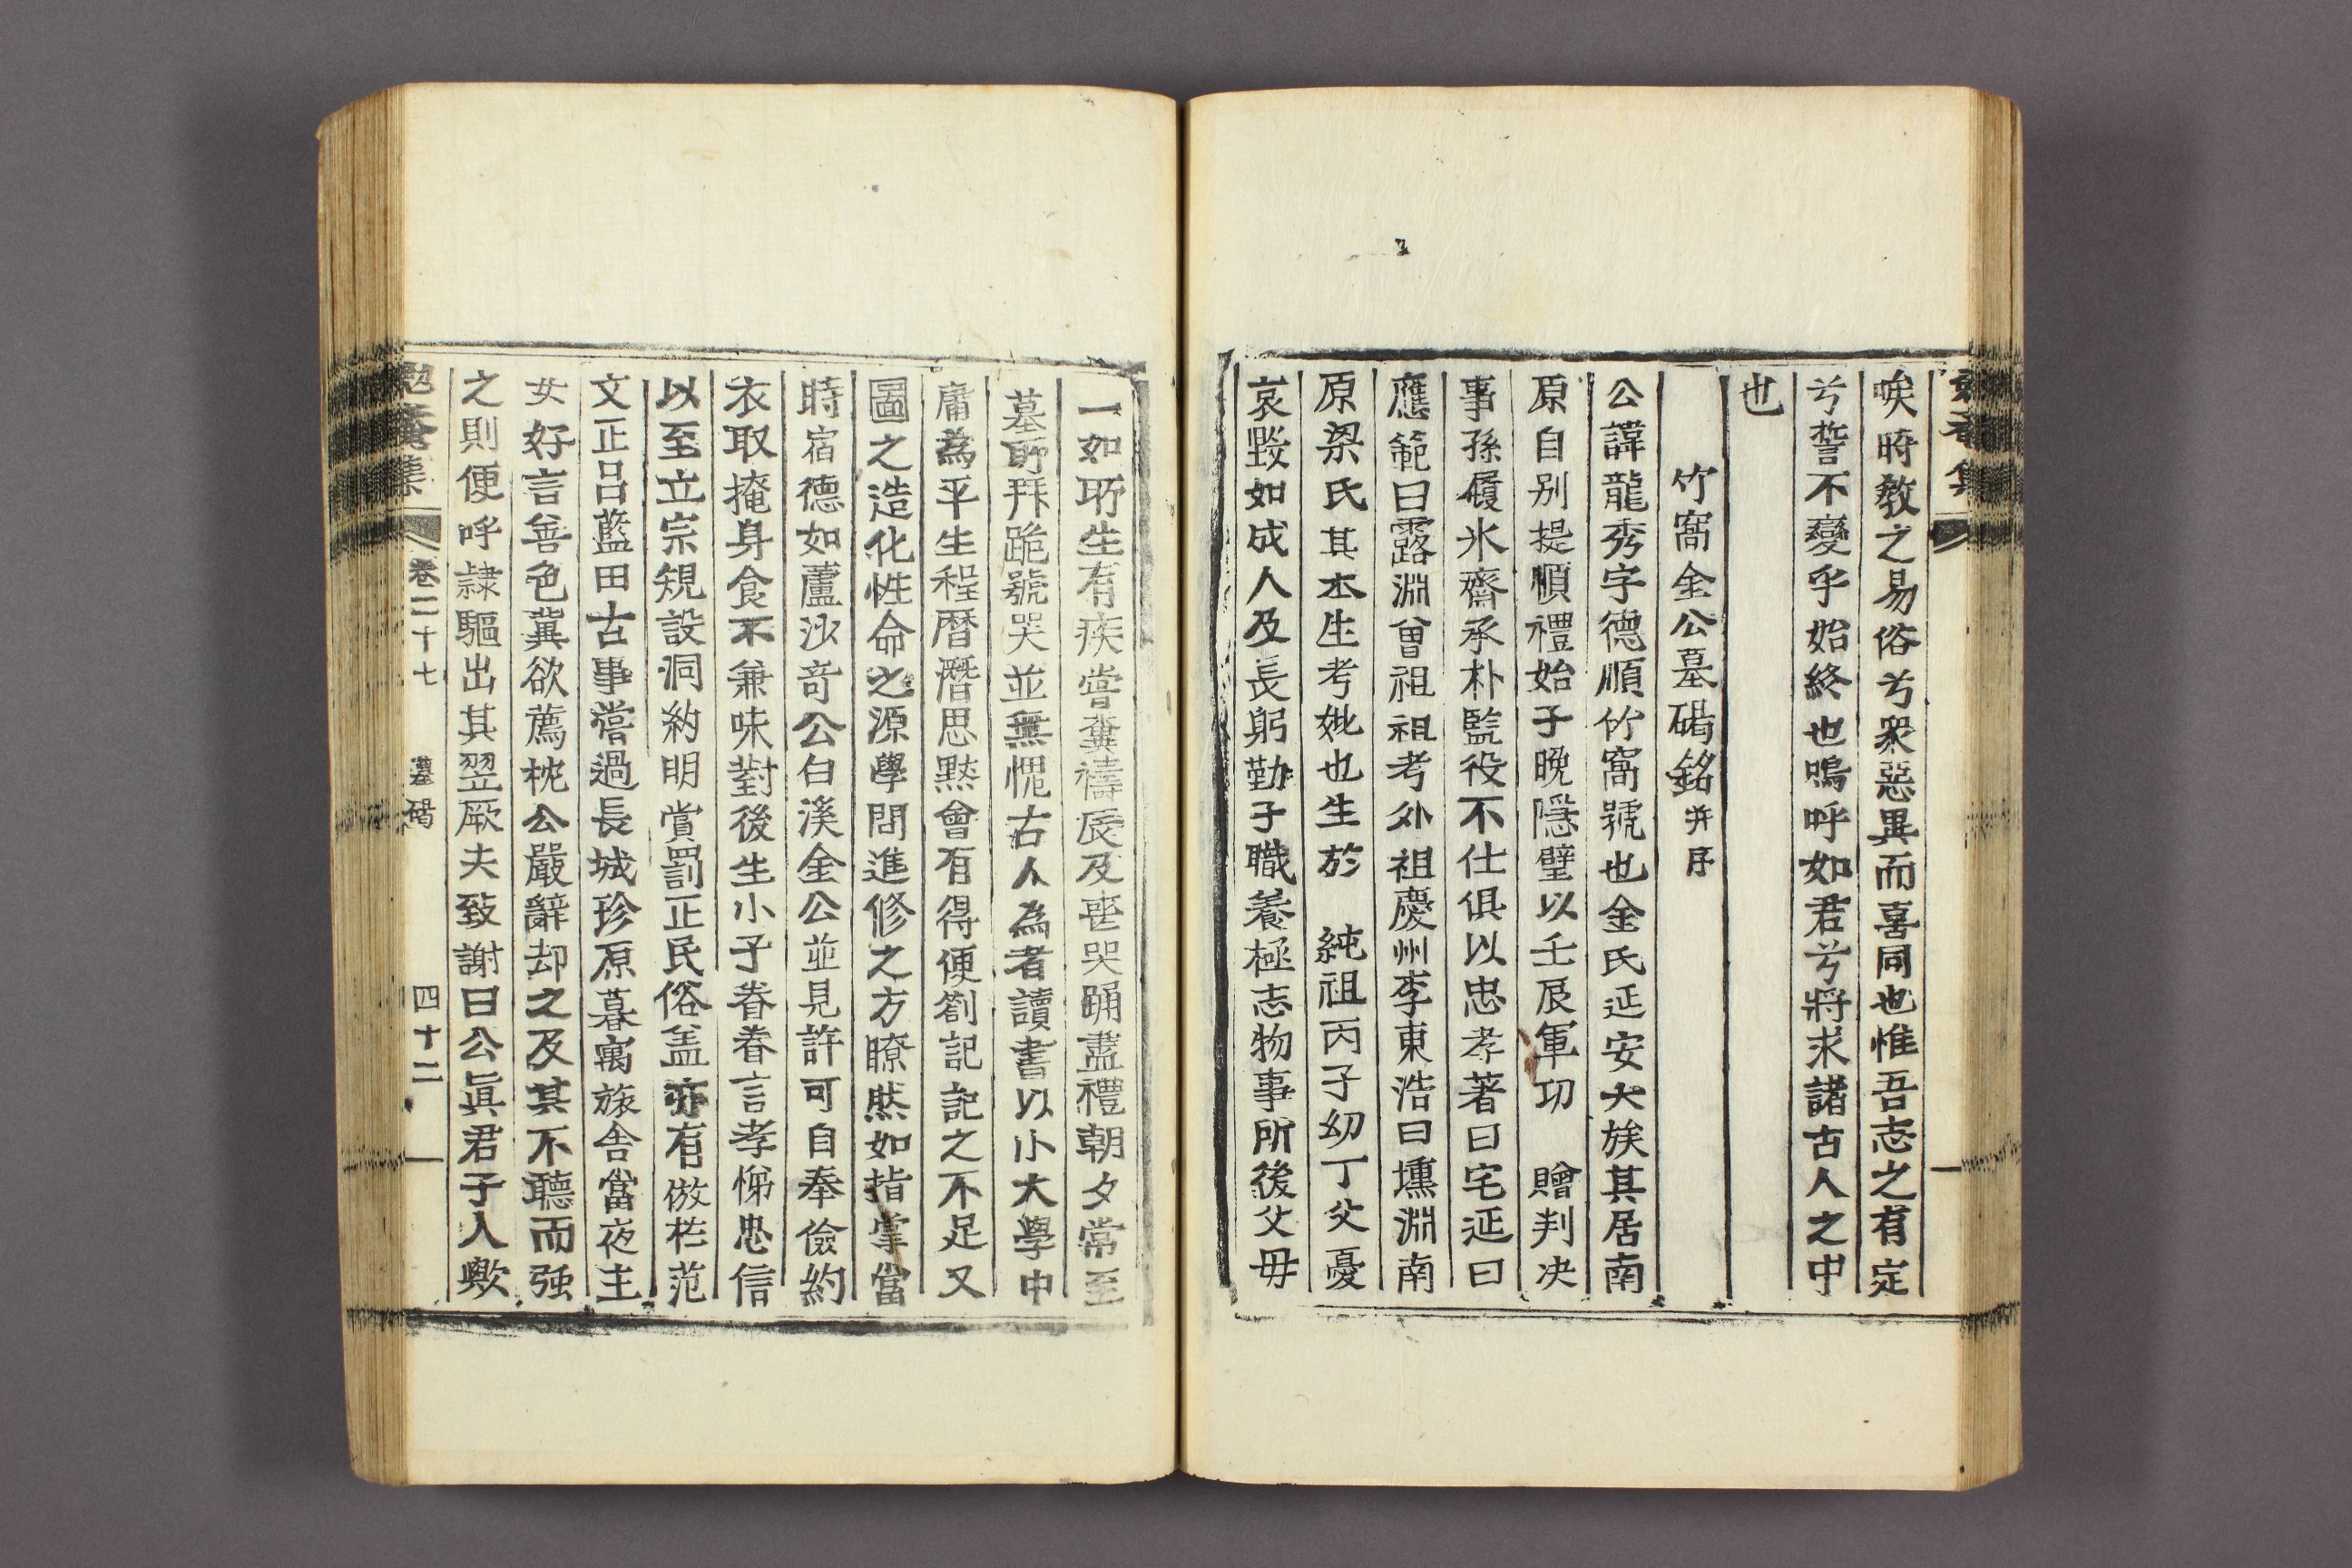 唉時敎之易俗兮衆惡異而喜同也惟吾志之有定
兮誓不變乎始終也嗚呼如君兮將求諸古人之中
也
竹窩金公墓碣銘 并序
公諱龍秀字德順竹窩號也金氏延安大族其居南
原自别提順禮始子晩隱壁以壬辰軍功 贈判决
事孫履氷齋承朴監役不仕俱以忠孝著曰宅延曰
應範曰露淵曾祖祖考外祖慶州李東浩曰壎淵南
原梁氏其本生考妣也生於 純祖丙子幼丁父憂
哀毁如成人及長躬勤子職養極志物事所後父母
一如所生有疾嘗糞禱辰及喪哭踊盡禮朝夕常至
墓所拜跪號哭並無愧古人為者讀書以小大學中
庸為平生程曆潛思黙會有得便劄記記之不足又
圖之造化性命之源學問進修之方瞭然如指掌當
時宿德如蘆沙竒公白溪金公並見許可自奉儉約
衣取掩身食不兼味對後生小子眷眷言孝悌忠信
以至立宗規設洞約明賞罰正民俗盖亦有倣於范
文正呂藍田古事嘗過長城珍原暮寓旅舍當夜主
女好言善色冀欲薦枕公嚴辭却之及其不聽而强
之則便呼隷驅出其翌厥夫致謝曰公眞君子人歟
勉菴集 卷二十七 墓碣 四十二